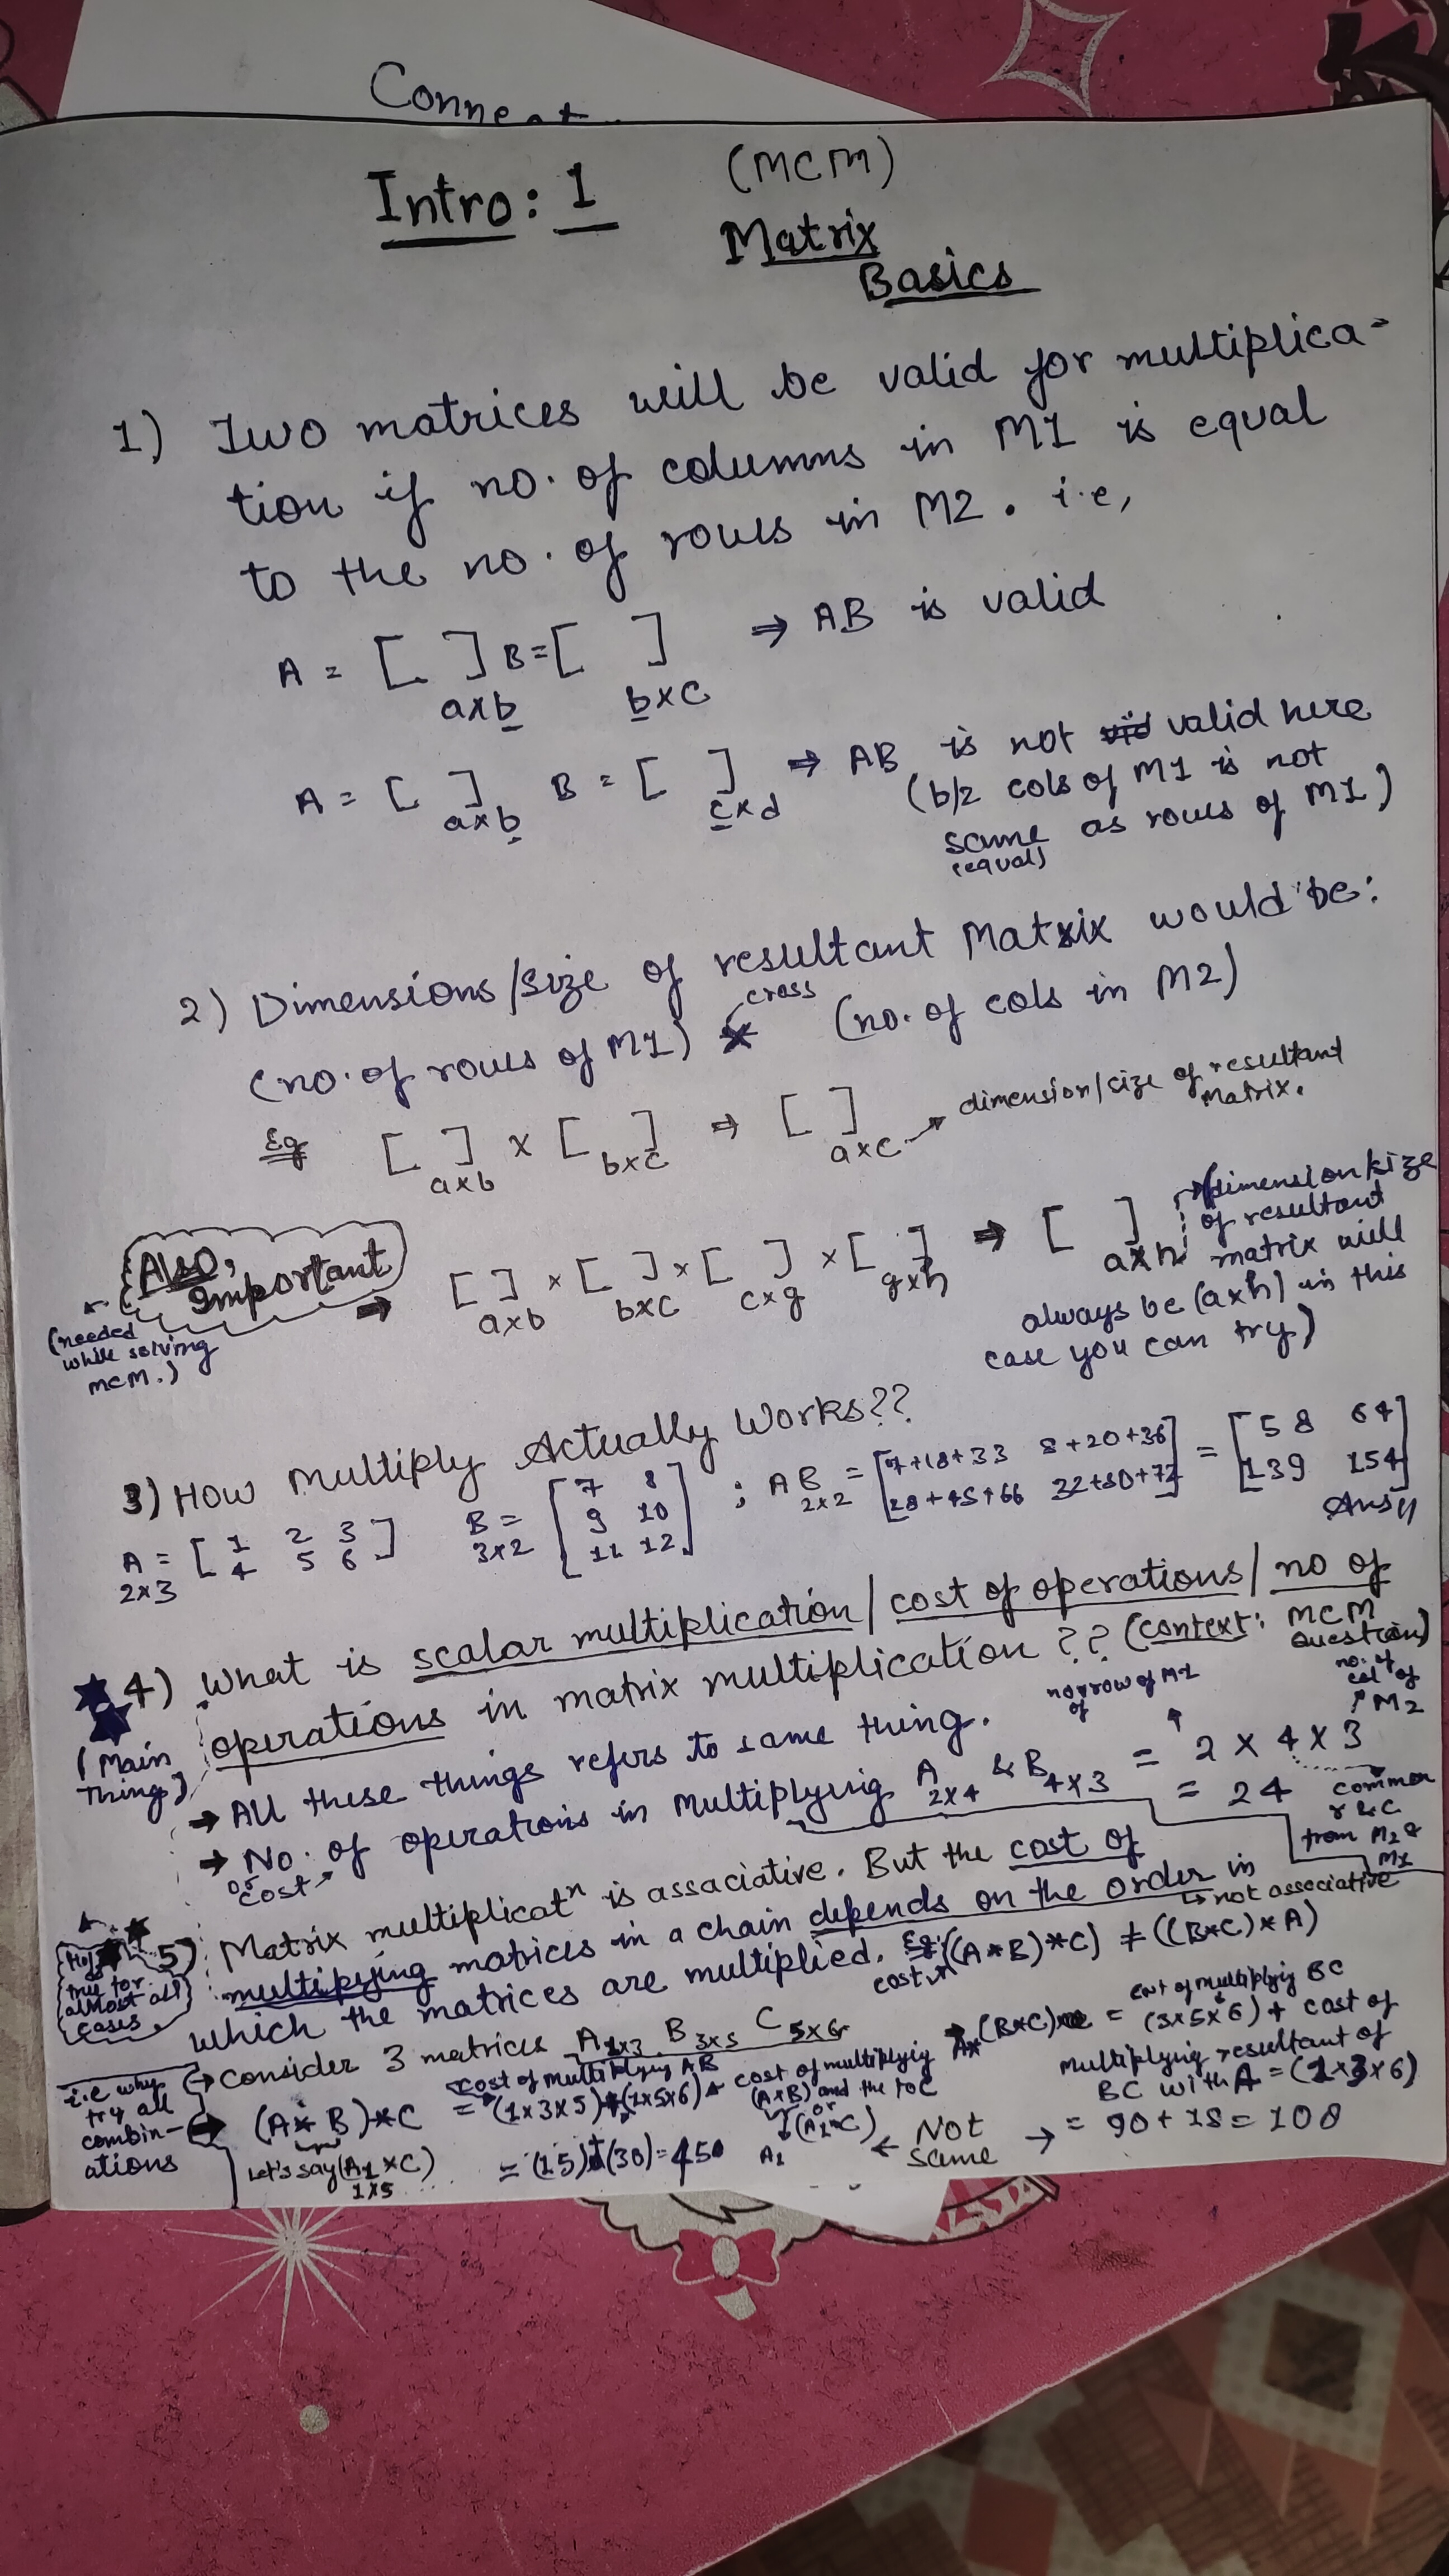 Connect
Intro: 1
(MCM)
Matrix
Basics
1) Two matrices will be valid for multiplica-
tion if no. of columns in M1 is equal
to the no. of rows in M2. i.e,
A = [ ] a×b B = [ ] b×c ⇒ AB is valid
A = [ ] a×b B = [ ] c×d ⇒ AB is not valid here
(b/z cols of M1 is not
same as rows of M1)
(equal)
2) Dimensions/size of resultant Matrix would be:
(no. of rows of M1) × (no. of cols in M2)
cross
Eg [ ] a×b × [ ] b×c ⇒ [ ] a×c → dimension/size of resultant
matrix.
Also,
Important
(needed
while solving
mcm.)
→ [ ] a×b × [ ] b×c × [ ] c×g × [ ] g×h ⇒ [ ] a×h
dimension/size
of resultant
matrix will
always be (a×h) in this
case you can try)
3) How Multiply Actually Works??
A = 2×3 [ 1 2 3
4 5 6 ]
B = 3×2 [ 7 8
9 10
11 12 ]
; AB = 2×2 [ 7+18+33 8+20+36
28+45+66 32+50+72 ]
= [ 58 64
139 154 ]
Ans//
4) What is scalar multiplication/cost of operations/no of
operations in matrix multiplication?? (context: MCM
question)
(Main
Thing)
→ All these things refers to same thing.
→ No. of operations in multiplying A 2×4 & B 4×3 = 2 × 4 × 3
= 24
or
cost
no of row of M1
no. of
col of
M2
common
r & c
from M2 &
M1
5) Matrix multiplicatⁿ is assaciative. But the cost of
multiplying matrices in a chain depends on the order in
which the matrices are multiplied. Eg: ((A*B)*C) ≠ ((B*C)*A)
↳ not associative
cost
true for
almost all
cases
i.e why
try all
combin-
ations
↳ Consider 3 matrices A 1×3 B 3×5 C 5×6
(A * B)*C = (1×3×5)+(1×5×6)
Let's say (A1 × C)
1×5
cost of multiplying AB
cost of multiplying
(A×B) and the to C
or
(A1×C)
A1
= (15)+(30)=450
← Not
same →
A*(B*C) = (3×5×6) + cost of
cost of multiplying BC
multiplying resultant of
BC with A = (1×3×6)
= 90+18 = 108